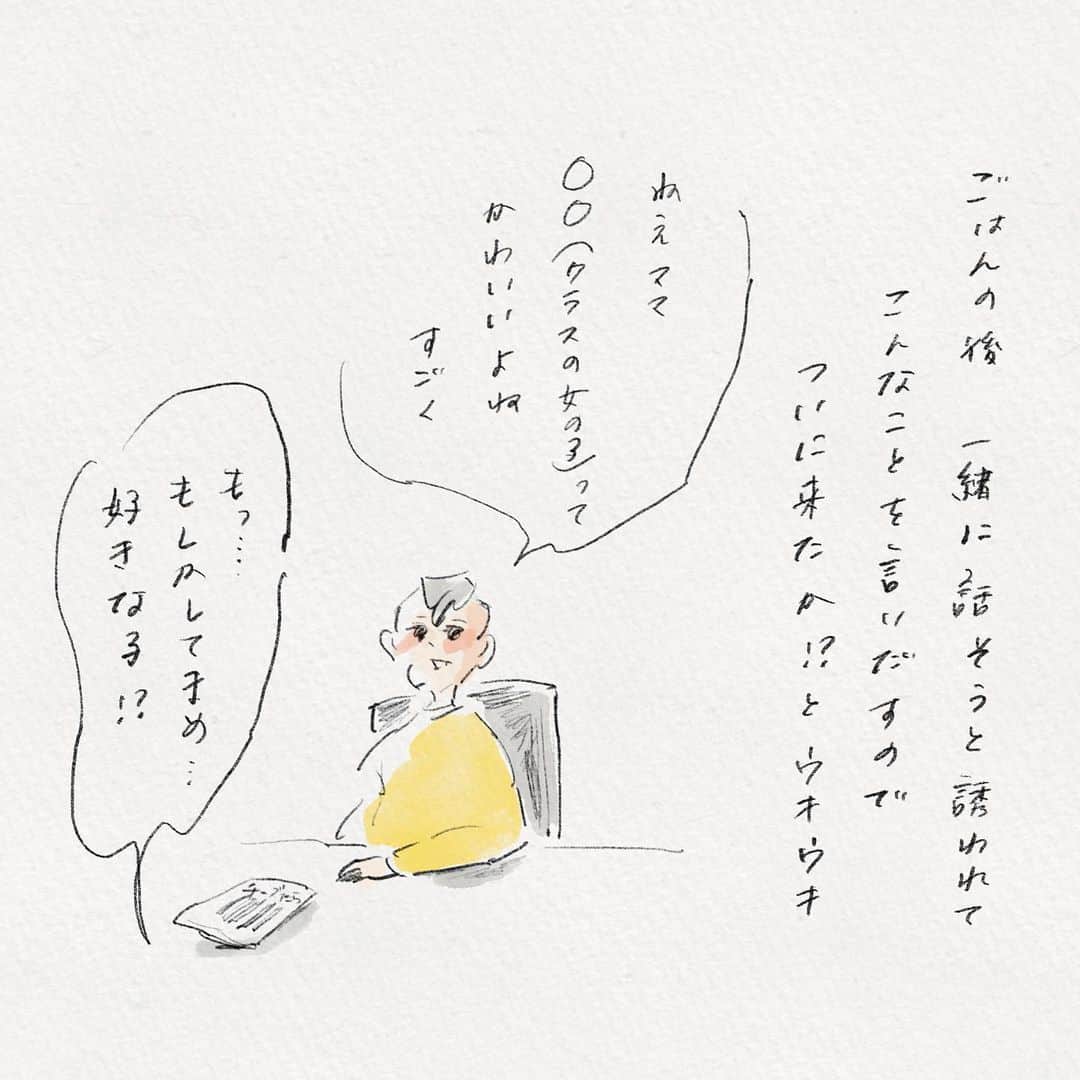 ごはんの後 一緒に話そうと誘われて
こんなことを言いだすので
ついに来たか!?とウキウキ
ねえママ
〇〇(クラスの女の子)って
かわいいよね
すごく
もっ…
もしかしてまめ…
好きなる!?